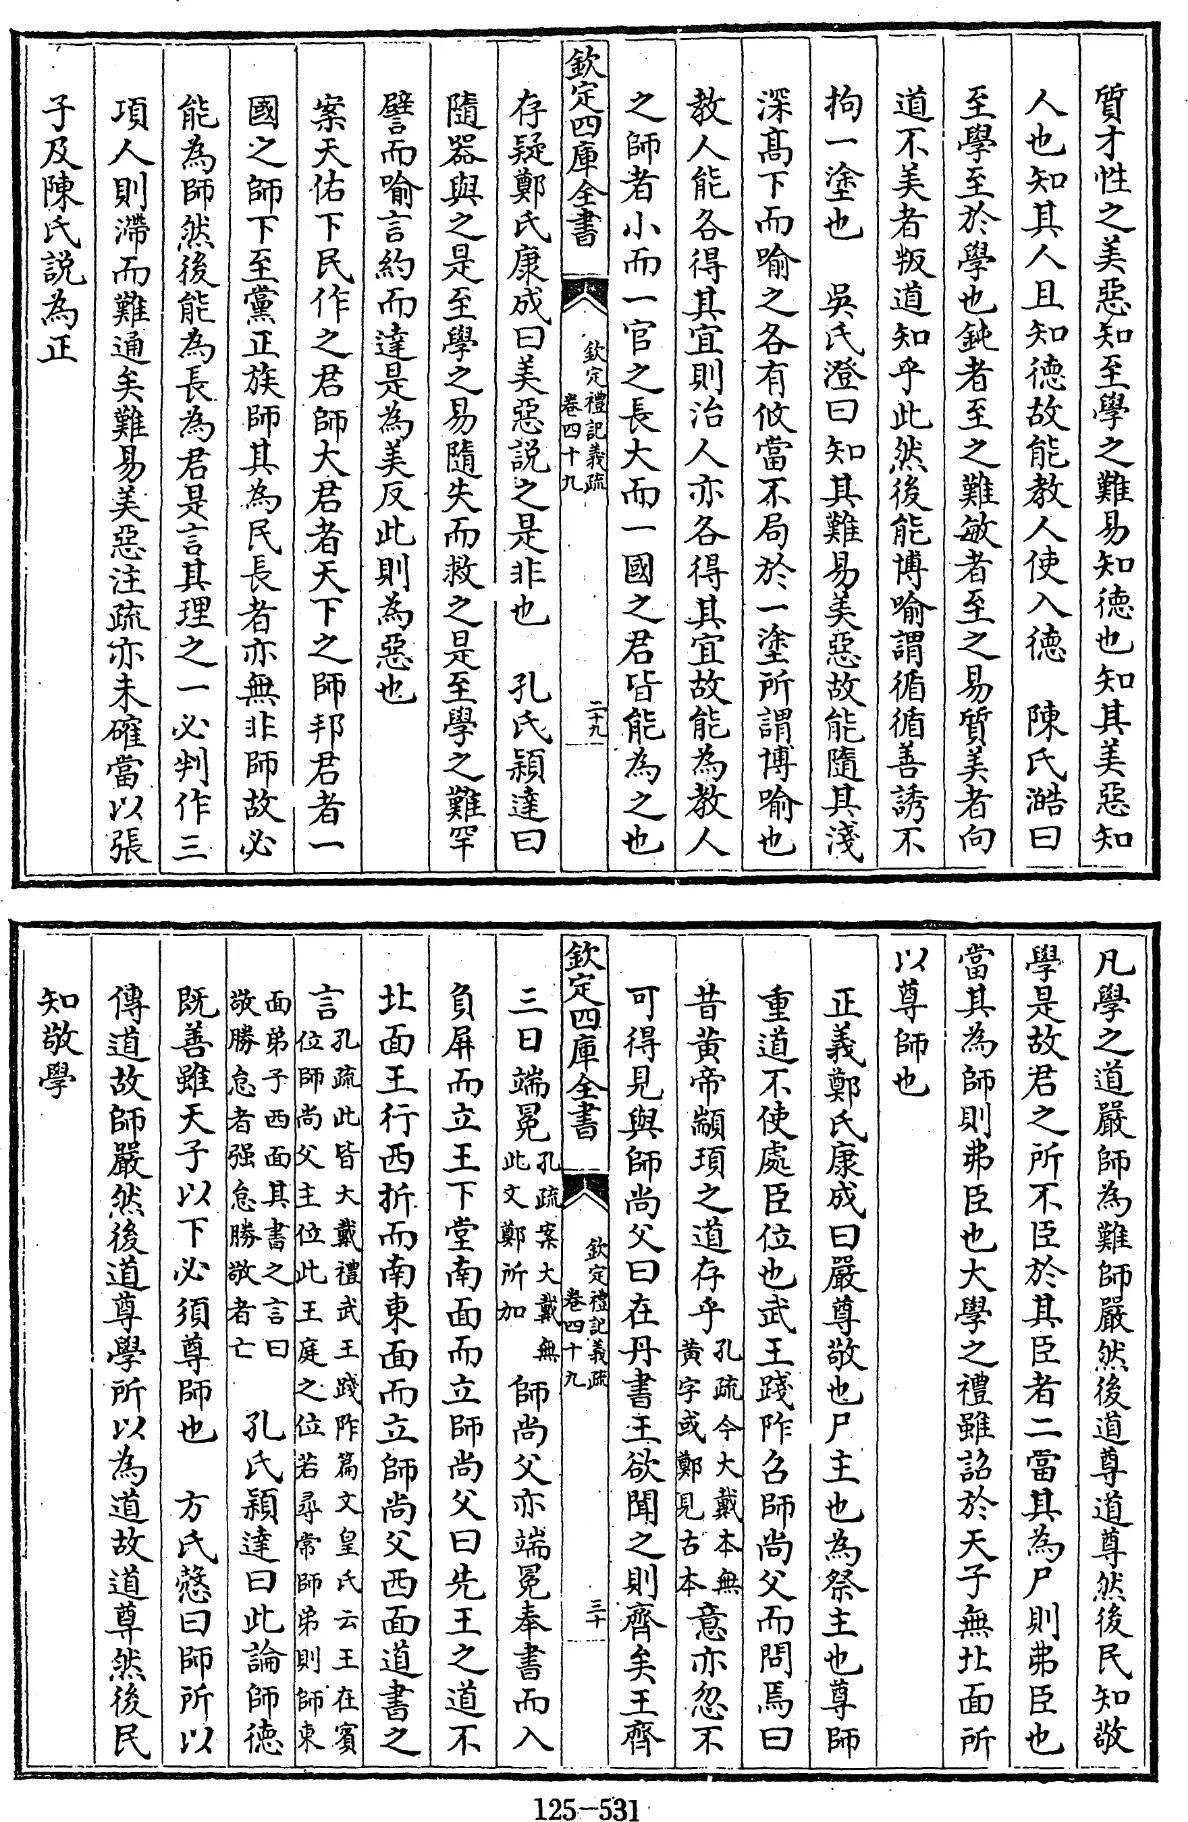 質才性之美惡知至學之難易知德也知其美惡知
人也知其人且知德故能教人使入德　陳氏澔曰
至學至於學也鈍者至之難敏者至之易質美者向
道不美者叛道知乎此然後能博喻謂循循善誘不
拘一塗也　吳氏澄曰知其難易美惡故能隨其淺
深髙下而喻之各有攸當不局於一塗所謂博喻也
教人能各得其宜則治人亦各得其宜故能為教人
之師者小而一官之長大而一國之君皆能為之也
欽定四庫全書
欽定禮記義疏
卷四十九
二十九
存疑鄭氏康成曰美惡説之是非也　孔氏穎達曰
隨器與之是至學之易隨失而救之是至學之難罕
譬而喻言約而達是為美反此則為惡也
案天佑下民作之君師大君者天下之師邦君者一
國之師下至黨正族師其為民長者亦無非師故必
能為師然後能為長為君是言其理之一必判作三
項人則滯而難通矣難易美惡注疏亦未確當以張
子及陳氏説為正
凡學之道嚴師為難師嚴然後道尊道尊然後民知敬
學是故君之所不臣於其臣者二當其為尸則弗臣也
當其為師則弗臣也大學之禮雖詔於天子無北面所
以尊師也
正義鄭氏康成曰嚴尊敬也尸主也為祭主也尊師
重道不使處臣位也武王踐阼召師尚父而問焉曰
昔黃帝顓頊之道存乎孔疏今大戴本無黃字或鄭見古本意亦忽不
可得見與師尚父曰在丹書王欲聞之則齊矣王齊
欽定四庫全書
欽定禮記義疏
卷四十九
三十
三日端冕孔疏案大戴無此文鄭所加師尚父亦端冕奉書而入
負屏而立王下堂南面而立師尚父曰先王之道不
北面王行西折而南東面而立師尚父西面道書之
言孔疏此皆大戴禮武王踐阼篇文皇氏云王在賓位師尚父主位此王庭之位若尋常師弟則師東
面弟子西面其書之言曰敬勝怠者强怠勝敬者亡　孔氏穎達曰此論師德
既善雖天子以下必須尊師也　方氏慤曰師所以
傳道故師嚴然後道尊學所以為道故道尊然後民
知敬學
125-531